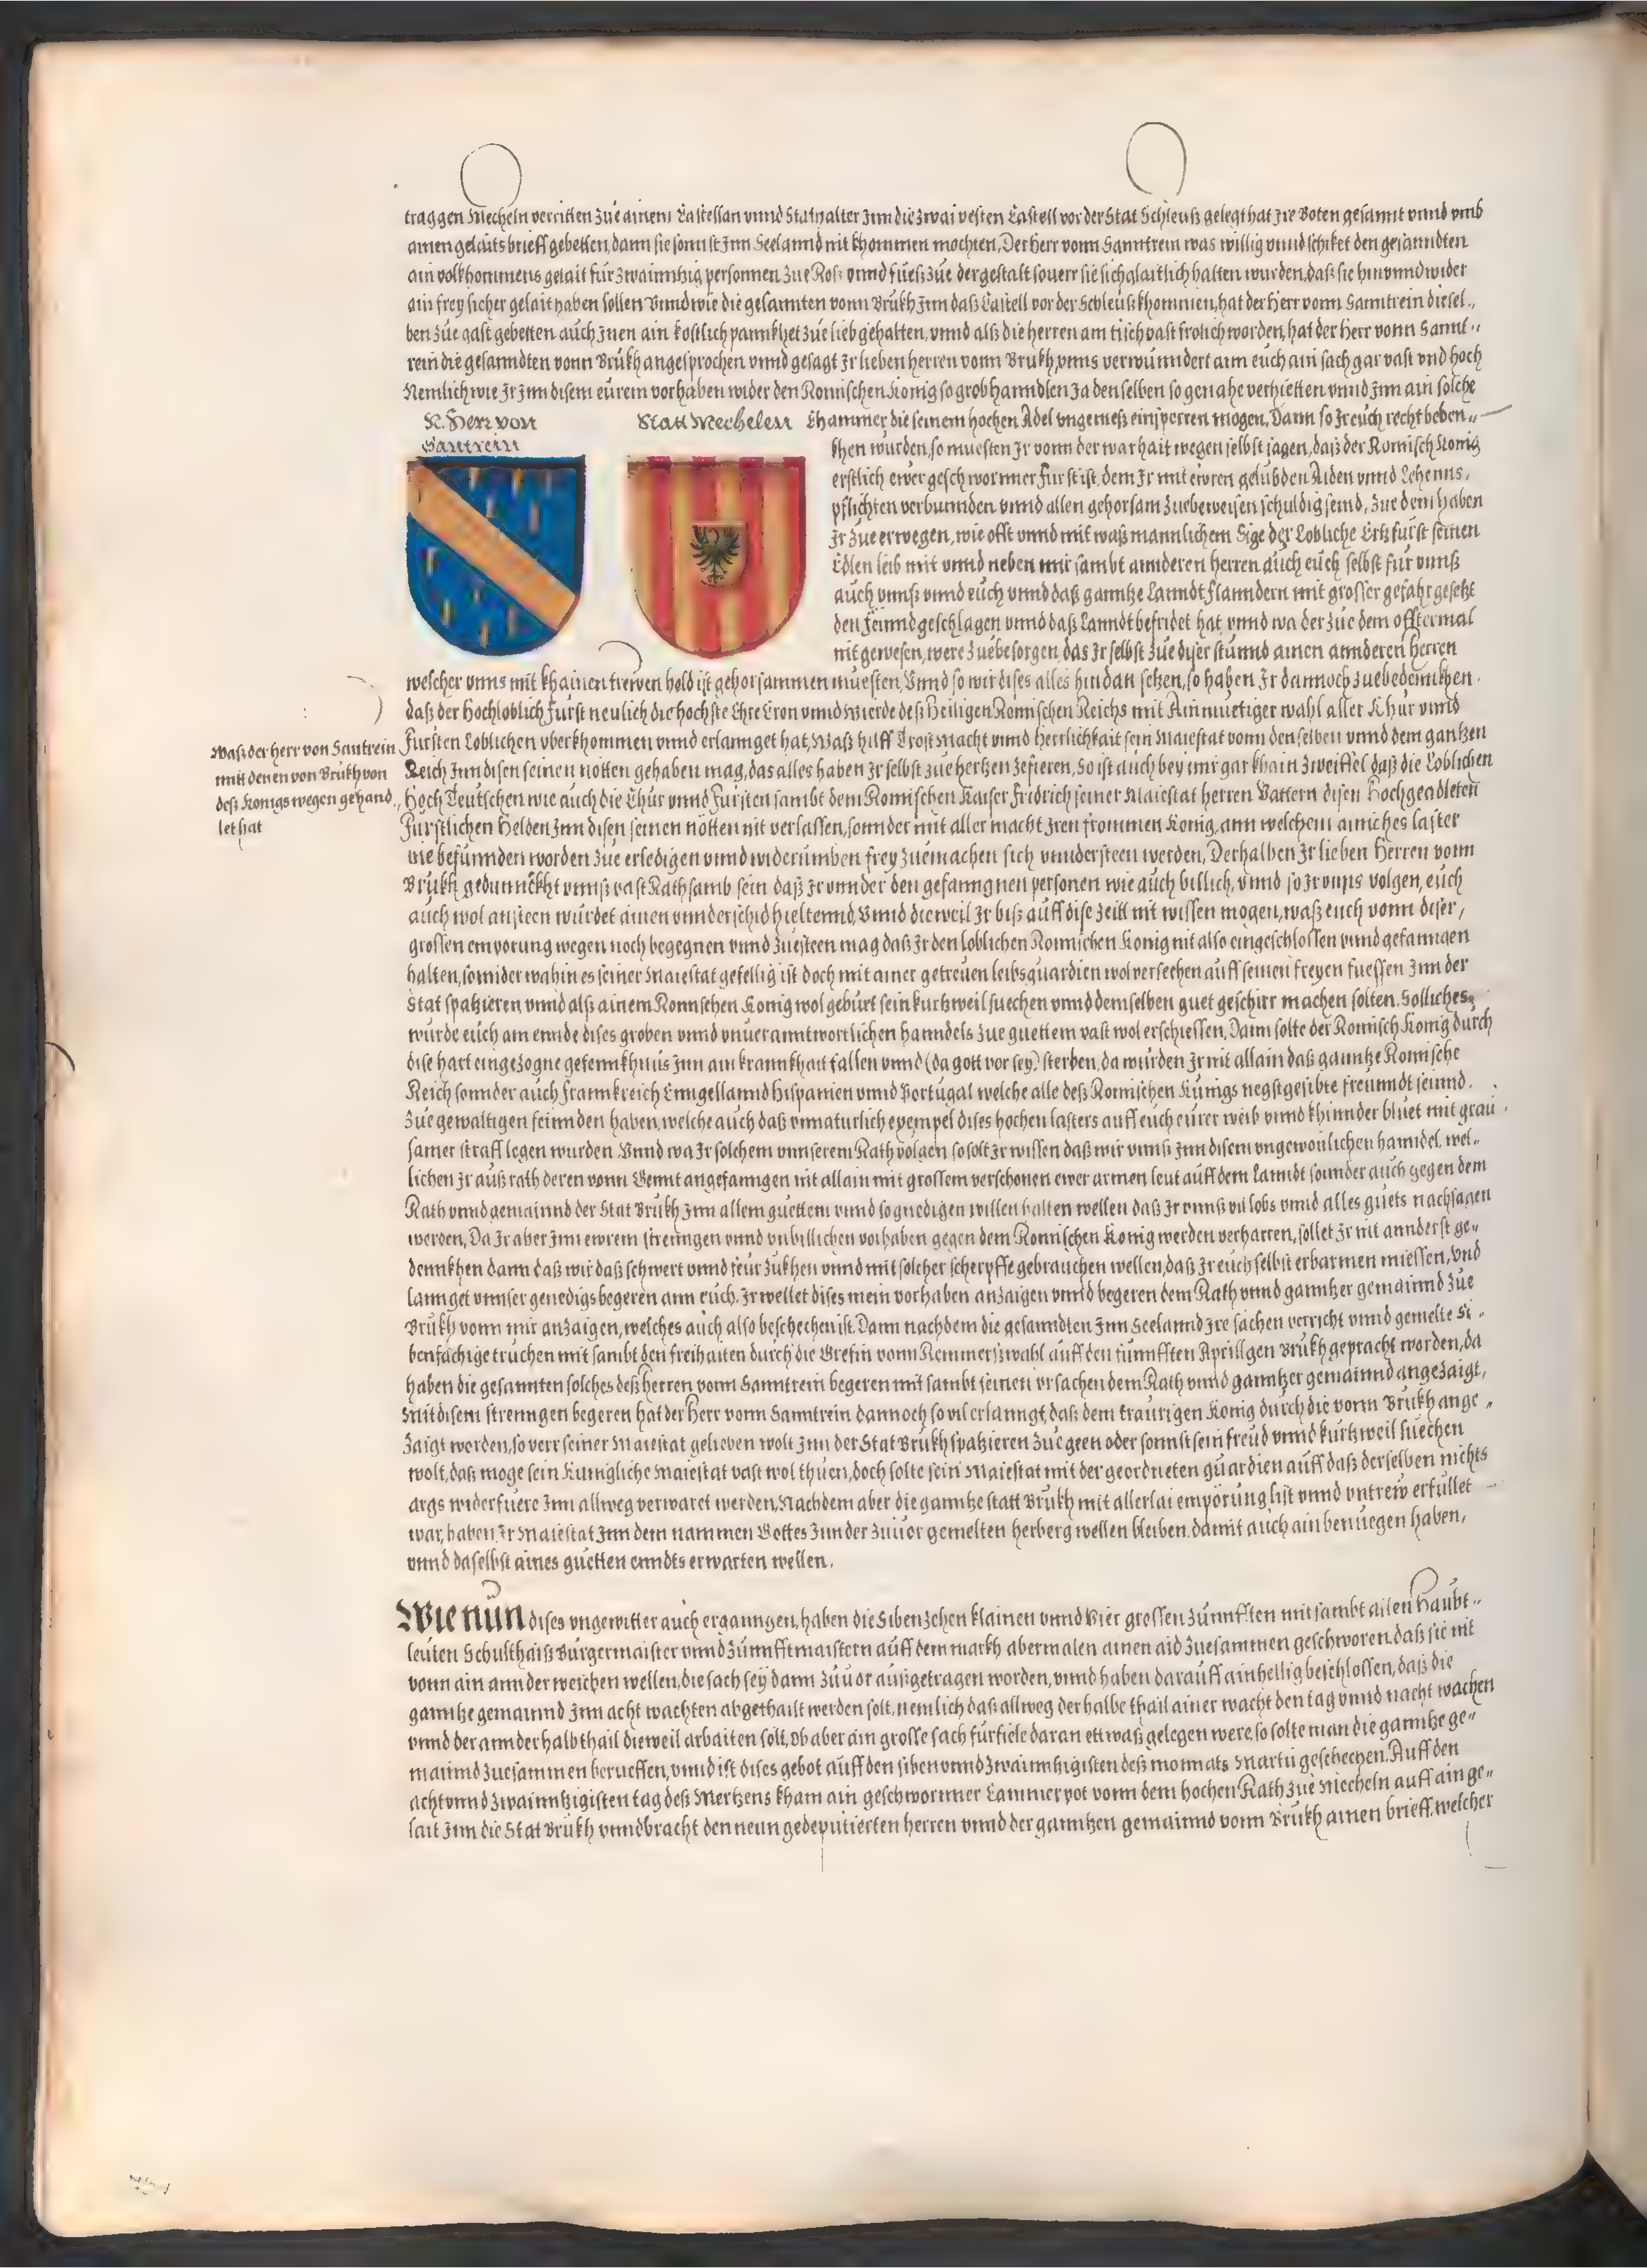 traggen Mecheln verritten zue ainem Castellan vnnd Stathalter Jnn die zwai vesten Castell vor der Stat Schleuß gelegt hat jre Boten gesannt vnnd vmb
ainen gelaitsbrieff gebetten, dann sie sonnst Jnn Seelannd nit khommen mochten, Der herr vonn Sanntrein was willig vnnd schiket den gesanndten
ain volkhommens gelait für zwainntzig personnen zue Roß vnnd fueß zue dergestalt souerr sie sich glaitlich halten wurden, daß sie hin vnnd wider
ain frey sicher gelait haben sollen Vnnd wie die gesannten vonn Brukh Jnn daß Castell vor der Schleus khommen, hat der Herr vonn Sanntrein diesel„
ben zue gast gebetten auch Jnen ain kostlich pannkhet zue lieb gehalten, vnnd alß die herren am tisch vast frolich worden, hat der Herr vonn Sannt„
rein die gesanndten vonn Brukh angesprochen vnnd gesagt Jr lieben herren vonn Brukh, vnns verwunndert ann euch ain sach gar vast vnd hoch
Nemlich wie Jr Jnn disem eurem vorhaben wider den Romischen Konig so grob hanndlen Ja denselben so genahe verhietten vnnd Jnn ain solche
N. Herr von
Santrein
Statt Mechelen
Chammer die seinem hochen Adel vngemeß einsperren mogen, Dann so Jr euch recht beden„
khen wurden, so muesten Jr vonn der warhait wegen selbst sagen, daß der Romisch Konig
erstlich ewer geschwornner Furst ist, dem Jr mit ewren gelubden Aiden vnnd Lehenns,
pflichten verbunnden vnnd allen gehorsam zuebeweisen schuldig seind, Zue dem haben
Jr zue erwegen, wie offt vnnd mit waß mannlichem Sige der Lobliche Ertzfurst seinen
Edlen leib mit vnnd neben mir sambt annderen herren auch euch selbst für vnnß
auch vnnß vnnd euch vnnd daß ganntze Lanndt Flanndern mit grosser gefahr gesetzt
den feinnd geschlagen vnnd daß Lanndt befridet hat, vnnd wa der zue dem offtermal
nit gewesen, were zuebesorgen, das Jr selbst zue diser stunnd ainen annderen herren
welcher vnns mit khainen trewen hold ist gehorsammen muesten, Vnnd so wir dises alles hindan setzen, so haben Jr dannoch zuebedennkhen.
daß der Hochloblich Furst neulich die hochste Ehre Cron vnnd Wierde deß Heiligen Romischen Reichs mit Ainmuetiger wahl aller Khur vnnd
Fursten Loblichen vberkhommen vnnd erlannget hat, Waß hilff Trost Macht vnnd Herrlichkait sein Maiestat vonn denselben vnnd dem gantzen
Reich Jnn disen seinen notten gehaben mag, das alles haben Jr selbst zue hertzen zefieren, So ist auch bey mir gar khain zweiffel daß die Loblichen
Hoch Teutschen wie auch die Chur vnnd Fursten sambt dem Romischen Kaiser Fridrich seiner Maiestat herren Vattern disen Hochgeadleten
Furstlichen Helden Jnn disen seinen nötten nit verlassen, sonnder mit aller macht Jren frommen Konig, ann welchem ainiches laster
nie befunnden worden zue erledigen vnnd widerumben frey zuemachen sich vnndersteen werden, Derhalben Jr lieben Herren vonn
Brukh gedunnckht vnnß vast Rathsamb sein daß Jr vnnder den gefanngnen personen wie auch billich, vnnd so Jr vnns volgen, euch
auch wol ansteen wurdet ainen vnnderschid hieltennd, Vnnd dieweil Jr biß auff dise zeitt nit wissen mogen, waß euch vonn diser,
grossen emporung wegen noch begegnen vnnd zuesteen mag daß Jr den loblichen Romischen Konig nit also eingeschlossen vnnd gefanngen
halten, sonnder wahin es seiner Maiestat gefellig ist doch mit ainer getreuen leibsguardien wol versechen auff seinen freyen fuessen Jnn der
Stat spatzieren vnnd alß ainem Romischen Konig wol geburt sein kurtzweil suechen vnnd demselben guet geschirr machen solten. Solliches
wurde euch am ennde dises groben vnnd vnuerantwortlichen hanndels zue guettem vast wol erschiessen, Dann solte der Romisch Konig durch
dise hart eingezogne gefennkhnus Jnn ain krannkhait fallen vnnd (da gott vor sey) sterben, da wurden Jr nit allain daß ganntze Romische
Reich sonnder auch Frannkreich Enngellannd Hispanien vnnd Portugal welche alle deß Romischen Kunigs negst gesibte freunndt seinnd.
zue gewaltigen feinnden haben, welche auch daß vnnaturlich exempel dises hochen lasters auff euch eurer weib vnnd khinnder bluet mit grau
samer straff legen wurden Vnnd wa Jr solchem vnnserem Rath volgen so solt Jr wissen daß wir vnnß Jnn disem vngewonlichen hanndel, wel„
lichen Jr auß rath deren vonn Gennt angefanngen nit allain mit grossem verschonen ewer armen leut auff dem Lanndt sonnder auch gegen dem
Rath vnnd gemainnd der Stat Brukh Jnn allem guettem vnnd so gnedigen willen halten wellen daß Jr vnnß vil lobs vnnd alles guets nachsagen
werden, Da Jr aber Jnn ewrem strenngen vnnd vnbillichen vorhaben gegen dem Romischen Konig werden verharren, sollet Jr nit annderst ge„
dennkhen dann daß wir daß schwert vnnd feur zukhen vnnd mit solcher scherpffe gebrauchen wellen, daß Jr euch selbst erbarmen miessen, Vnd
lannget vnnser genedigs begeren ann euch, Jr wellet dises mein vorhaben anzaigen vnnd begeren dem Rath vnnd ganntzer gemainnd zue
Brukh vonn mir anzaigen, welches auch also beschechen ist. Dann nachdem die gesanndten Jnn Seelannd Jre sachen verricht vnnd gemelte Si„
benfächige truchen mit sambt den freihaiten durch die Grefin vonn Remmerßwahl auff den funnfften Aprill gen Brukh gepracht worden, da
haben die gesannten solches deß Herren vonn Sanntrein begeren mit sambt seinen vrsachen dem Rath vnnd ganntzer gemainnd angezaigt,
Mit disem strenngen begeren hat der Herr vonn Sanntrein dannoch so vil erlanngt, daß dem traurigen Konig durch die vonn Brukh ange„
zaigt worden, so verr seiner Maiestat gelieben wolt Jnn der Stat Brukh spatzieren zue geen oder sonnst sein freud vnnd kurtzweil suechen
wolt, daß moge sein Kunigliche Maiestat vast wol thuen, doch solte sein Maiestat mit der geordneten guardien auff daß derselben nichts
args widerfuere Jnn allweg verwaret werden. Nachdem aber die ganntze statt Brukh mit allerlai empörung list vnnd vntrew erfullet
war, haben Jr Maiestat Jnn dem nammen Gottes Jnn der zuuor gemelten herberg wellen bleiben, damit auch ain benuegen haben,
vnnd daselbst aines guetten enndts erwarten wellen.
Waß der herr von Santrein
mit denen von Brukh von
deß Konigs wegen gehand„
let hat
Wie nun dises vngewitter auch erganngen, haben die Sibenzehen klainen vnnd Vier grossen zunnfften mit sambt allen Haubt„
leuten Schulthaiß Burgermaister vnnd Zunnfftmaistern auff dem markh abermalen ainen aid zuesammen geschworen, daß sie nit
vonn ain annder weichen wellen, die sach sey dann zuuor außgetragen worden, vnnd haben darauff ainhellig beschlossen, daß die
ganntze gemainnd Jnn acht wachten abgethailt werden solt, nemlich daß allweg der halbe thail ainer wacht den tag vnnd nacht wachen
vnnd der annder halb thail dieweil arbaiten solt, ob aber ain grosse sach fürfiele daran ettwaß gelegen were, so solte man die ganntze ge„
mainnd zuesammen berueffen, vnnd ist dises gebot auff den siben vnnd zwainntzigisten deß monnats Martii geschechen. Auff den
acht vnnd zwainntzigisten tag deß Mertzens kham ain geschwornner Cammerpot vonn dem hochen Rath zue Mecheln auff ain ge„
lait Jnn die Stat Brukh vnnd bracht den neun gedeputierten herren vnnd der ganntzen gemainnd vonn Brukh ainen brieff, welcher